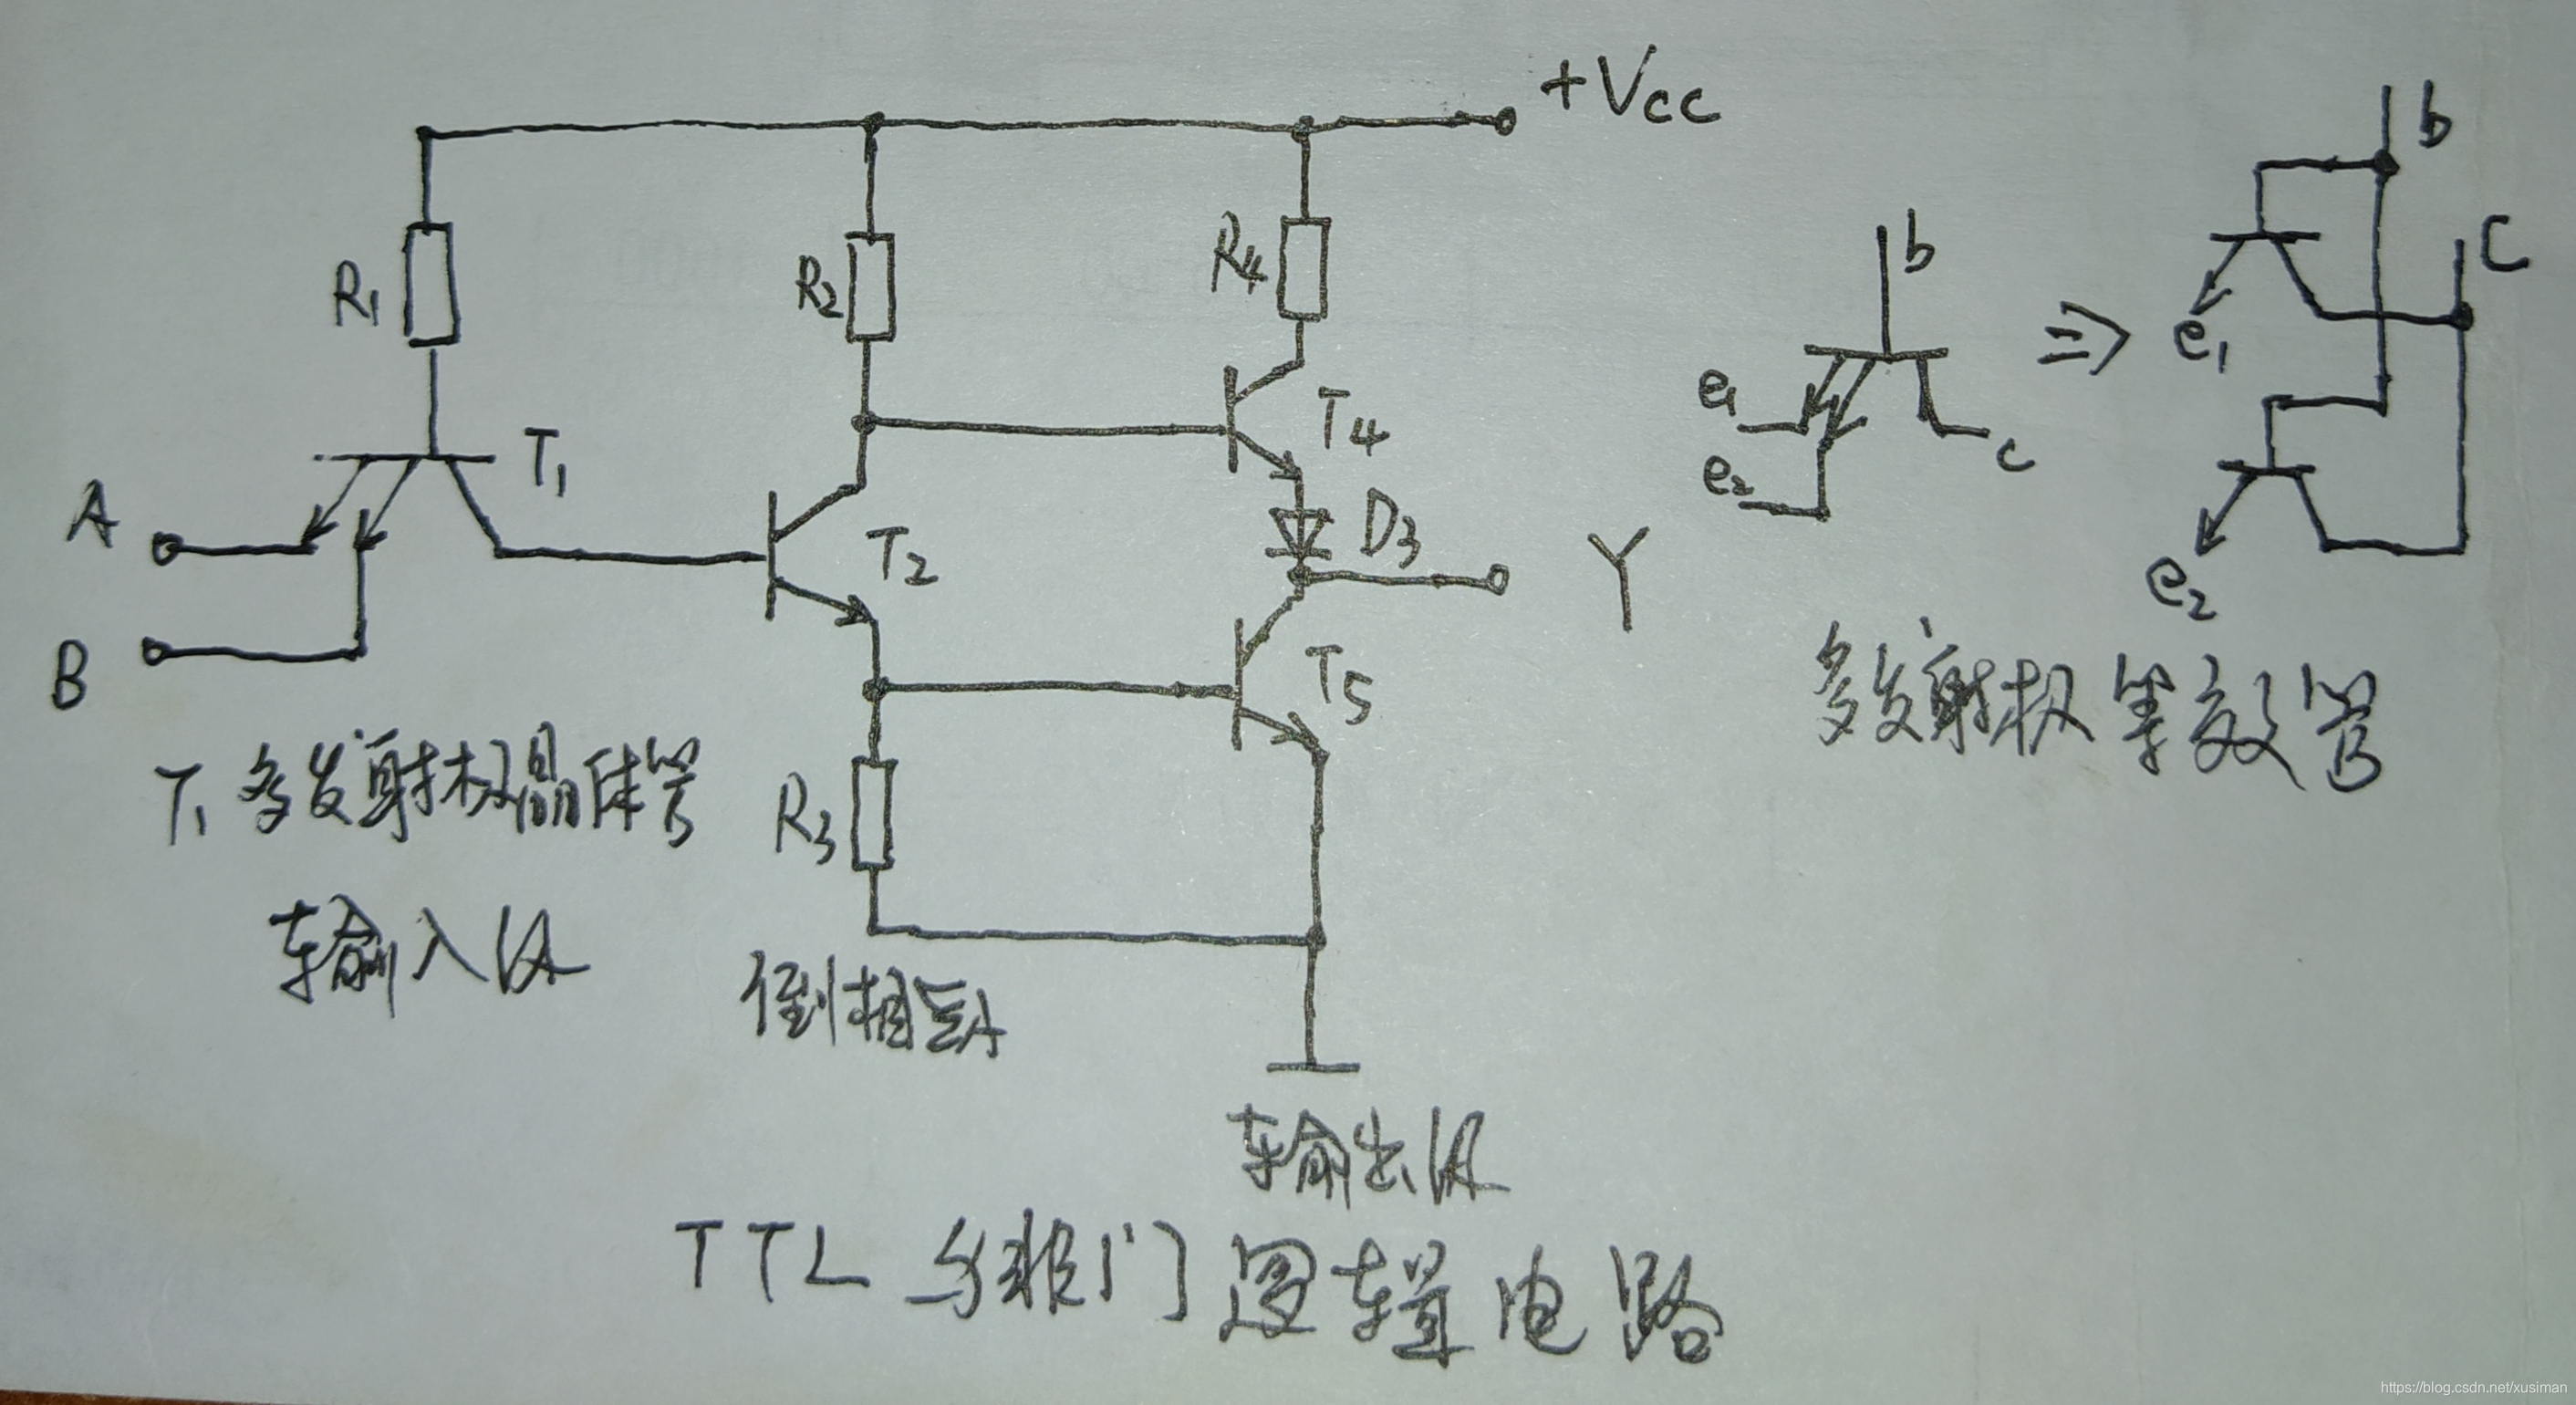 +Vcc
b
C
R1
R2
R4
b
e1
T1
T4
e1
c
e2
A
T2
D3
Y
e2
B
T5
多发射极等效管
T1 多发射极晶体管
R3
输入级
倒相级
输出级
TTL与非门逻辑电路
https://blog.csdn.net/xusiman